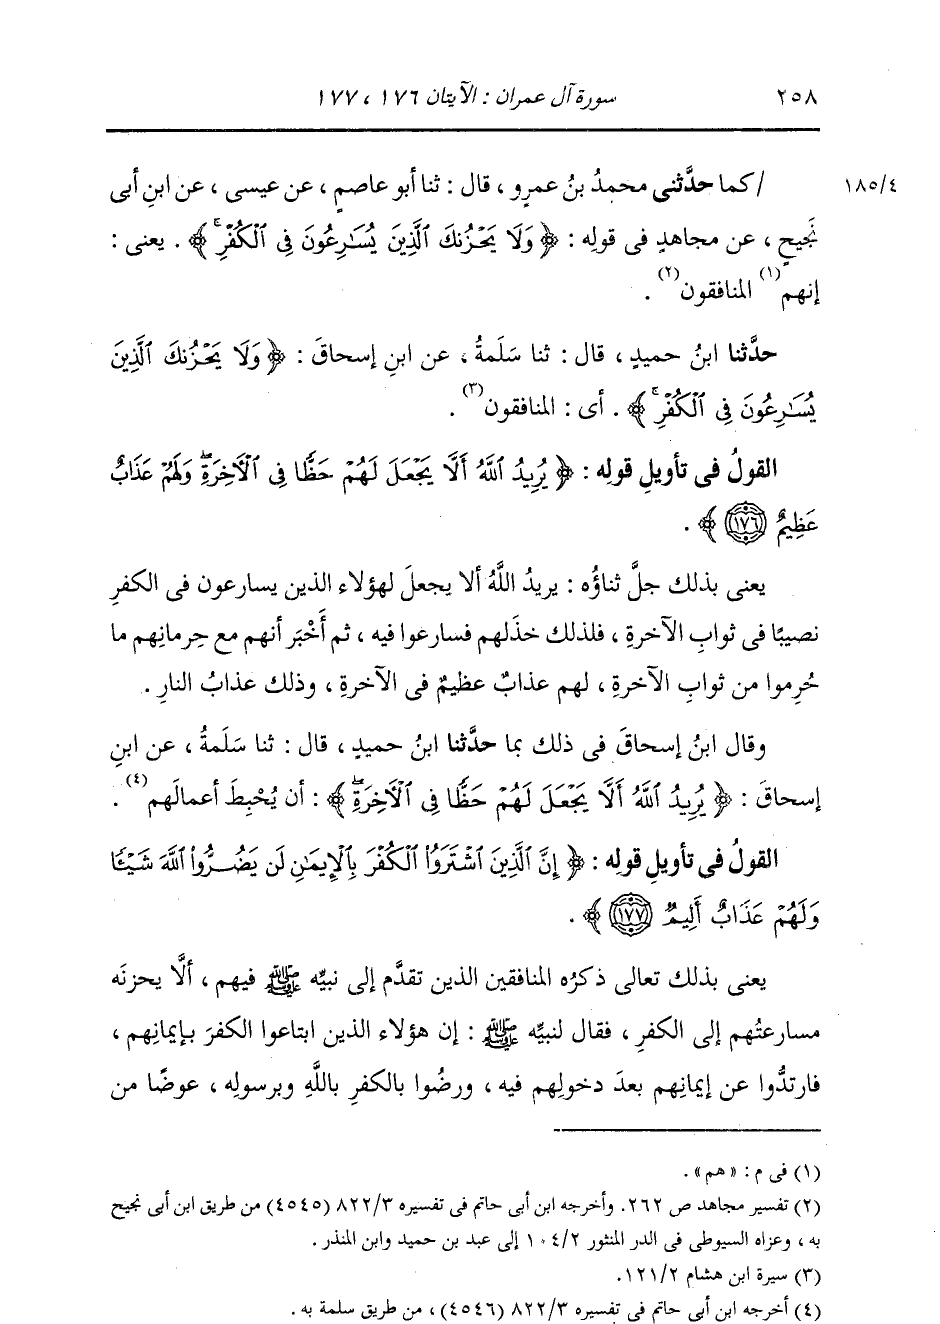 ٢٥٨ سورة آل عمران : الآيتان ١٧٦ ، ١٧٧
١٨٥/٤ / كما حدَّثنى محمدُ بنُ عمرٍو ، قال : ثنا أبو عاصمٍ ، عن عيسى ، عن ابنِ أبى
نَجيحٍ ، عن مجاهدٍ فى قولِه : ﴿ وَلَا يَحْزُنكَ ٱلَّذِينَ يُسَٰرِعُونَ فِى ٱلْكُفْرِۚ ﴾ . يعنى :
إنهم(١) المنافقون(٢) .
حدَّثنا ابنُ حميدٍ ، قال : ثنا سَلَمةُ ، عن ابنِ إسحاقَ : ﴿ وَلَا يَحْزُنكَ ٱلَّذِينَ
يُسَٰرِعُونَ فِى ٱلْكُفْرِۚ ﴾ . أى : المنافقون(٣) .
القولُ فى تأويلِ قولِه : ﴿ يُرِيدُ ٱللَّهُ أَلَّا يَجْعَلَ لَهُمْ حَظًّا فِى ٱلْآخِرَةِۖ وَلَهُمْ عَذَابٌ
عَظِيمٌ ١٧٦ ﴾ .
يعنى بذلك جلَّ ثناؤُه : يريدُ اللَّهُ ألا يجعلَ لهؤلاء الذين يسارعون فى الكفرِ
نصيبًا فى ثوابِ الآخرةِ ، فلذلك خذَلهم فسارعوا فيه ، ثم أَخْبَر أنهم مع حِرمانِهم ما
حُرِموا من ثوابِ الآخرةِ ، لهم عذابٌ عظيمٌ فى الآخرةِ ، وذلك عذابُ النارِ .
وقال ابنُ إسحاقَ فى ذلك بما حدَّثنا ابنُ حميدٍ ، قال : ثنا سَلَمةُ ، عن ابنِ
إسحاقَ : ﴿ يُرِيدُ ٱللَّهُ أَلَّا يَجْعَلَ لَهُمْ حَظًّا فِى ٱلْآخِرَةِۖ ﴾ : أن يُحْبِطَ أعمالَهم(٤) .
القولُ فى تأويلِ قولِه : ﴿ إِنَّ ٱلَّذِينَ ٱشْتَرَوُا۟ ٱلْكُفْرَ بِٱلْإِيمَٰنِ لَن يَضُرُّوا۟ ٱللَّهَ شَيْـًٔا
وَلَهُمْ عَذَابٌ أَلِيمٌ ١٧٧ ﴾ .
يعنى بذلك تعالى ذكرُه المنافقين الذين تقدَّم إلى نبيِّه ﷺ فيهم ، ألَّا يحزنَه
مسارعتُهم إلى الكفرِ ، فقال لنبيِّه ﷺ : إن هؤلاء الذين ابتاعوا الكفرَ بإيمانِهم ،
فارتدُّوا عن إيمانِهم بعدَ دخولِهم فيه ، ورضُوا بالكفرِ باللَّهِ وبرسولِه ، عوضًا من
(١) فى م : «هم» .
(٢) تفسير مجاهد ص ٢٦٢. وأخرجه ابن أبى حاتم فى تفسيره ٨٢٢/٣ (٤٥٤٥) من طريق ابن أبى نجيح
به ، وعزاه السيوطى فى الدر المنثور ١٠٤/٢ إلى عبد بن حميد وابن المنذر .
(٣) سيرة ابن هشام ١٢١/٢.
(٤) أخرجه ابن أبى حاتم فى تفسيره ٨٢٢/٣ (٤٥٤٦) ، من طريق سلمة به .